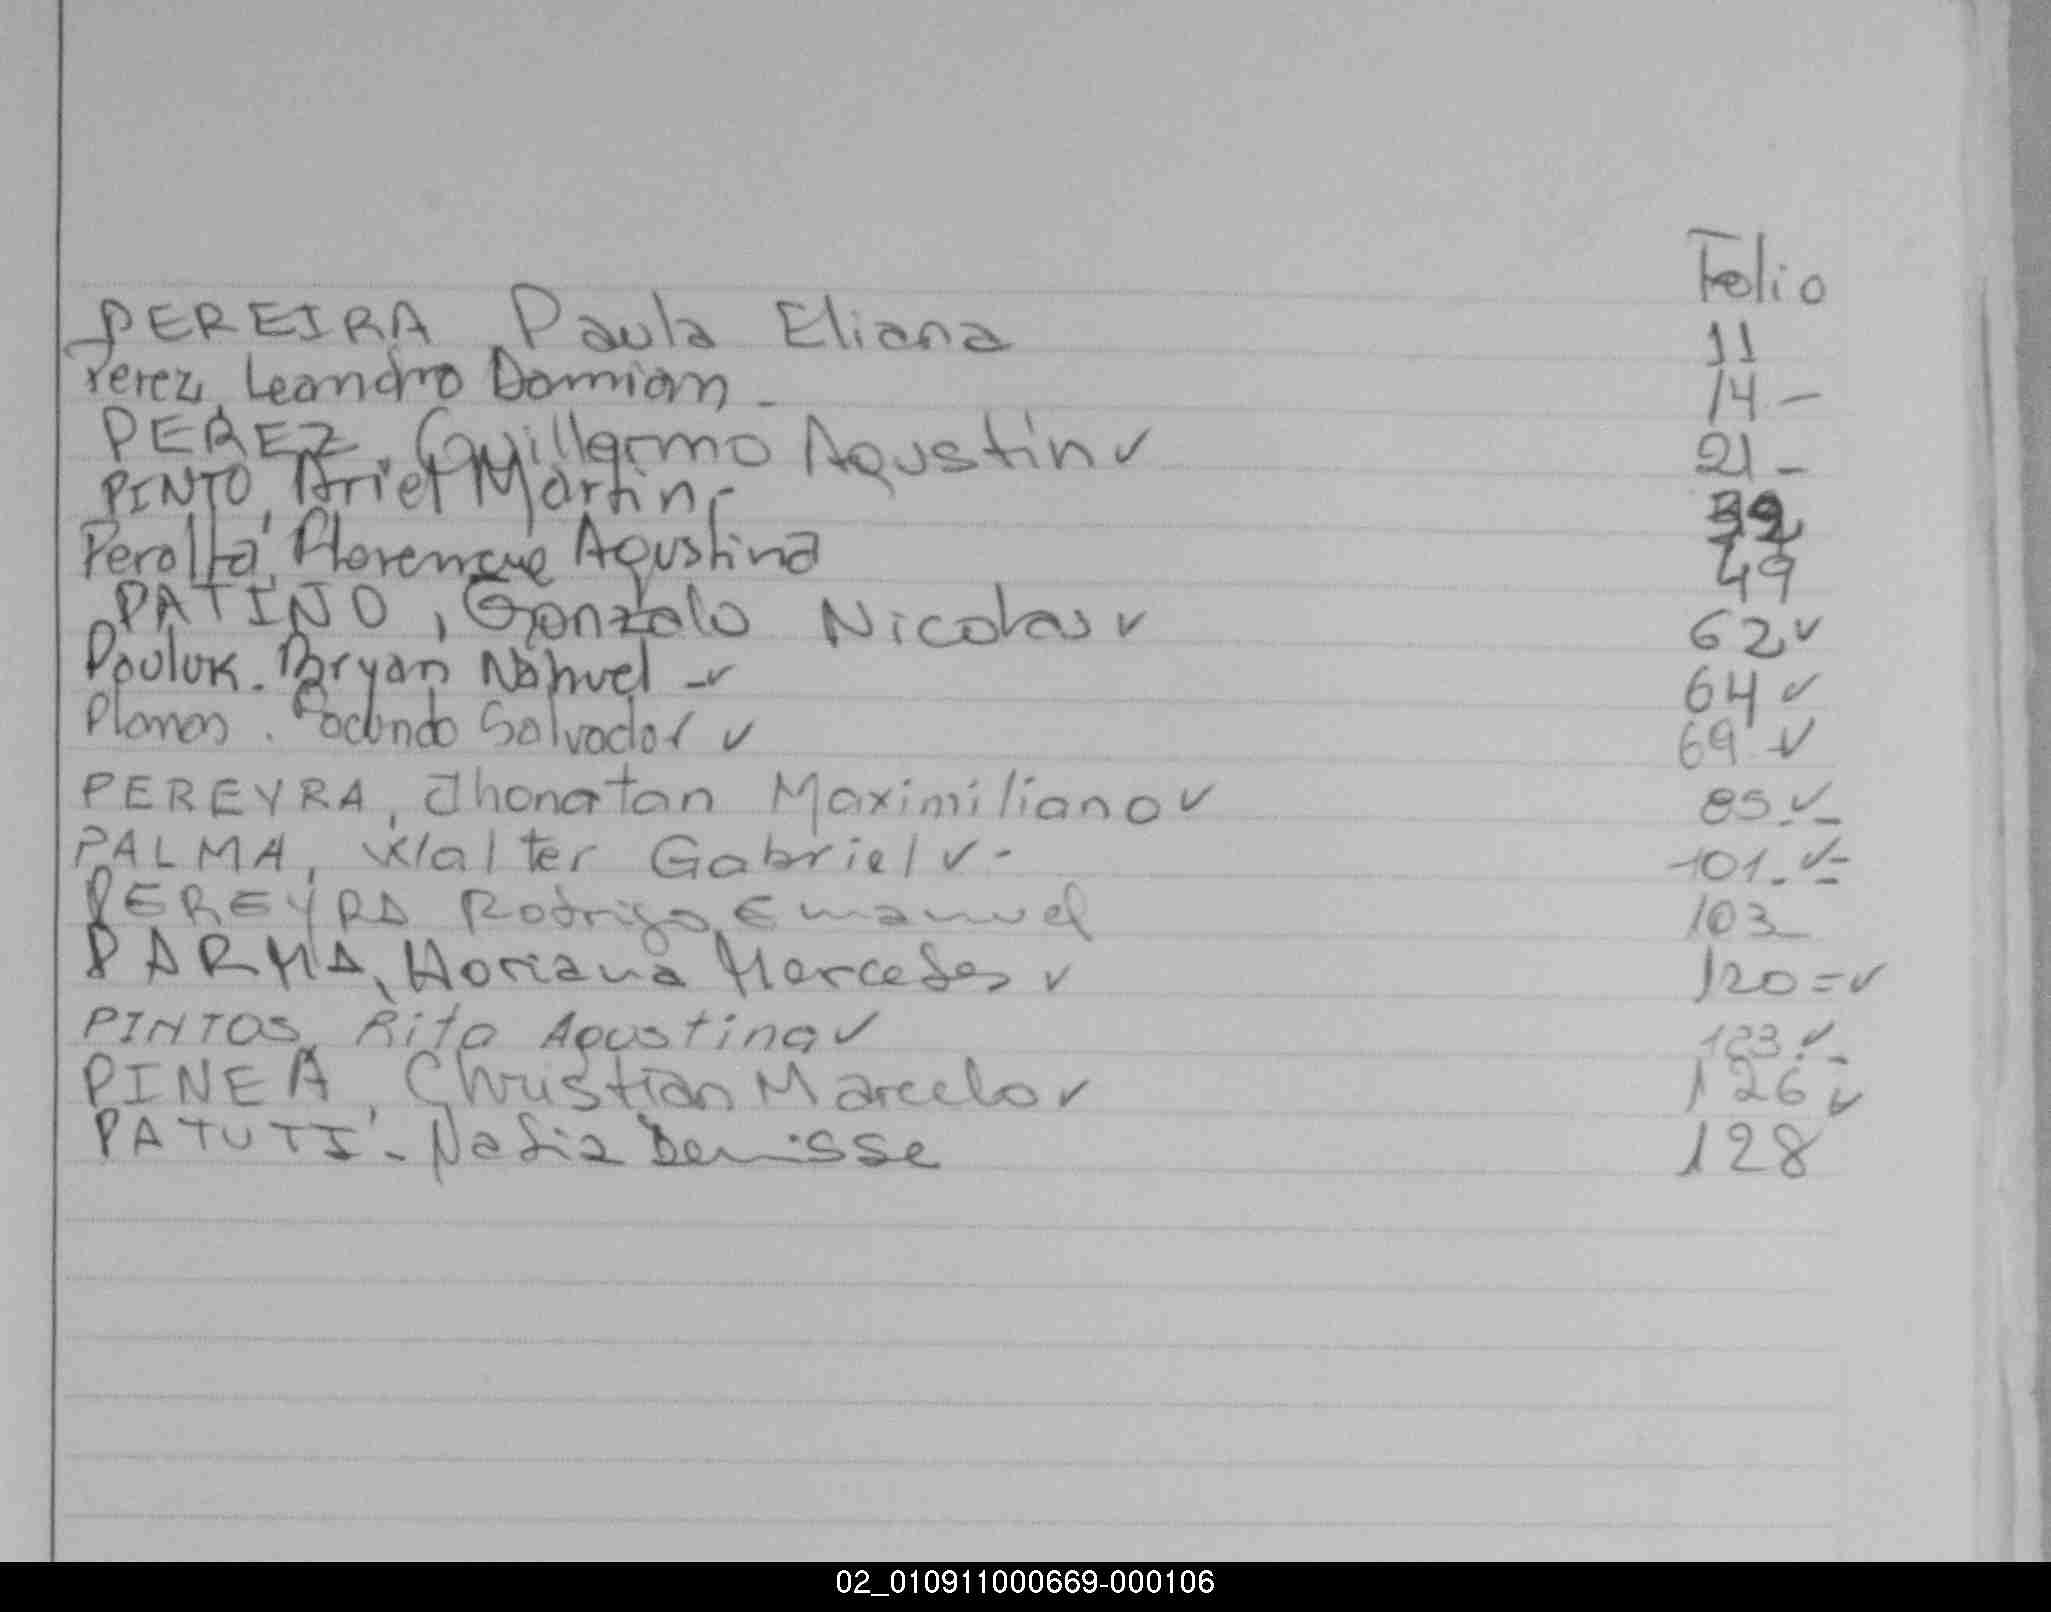 Folio
PEREIRA Paula Eliana 11
Perez, Leandro Damian - 14 -
PEREZ, Guillermo Agustin ✓ 21 -
PINTO, Ariel Martin -
Peralta, Agustina 49
PATINO, Gonzalo Nicolas ✓ 62 ✓
Pauluk. Bryan Nahuel - ✓ 64 ✓
Planas. Facundo Salvador ✓ 69 ✓
PEREYRA, Jhonatan Maximiliano ✓ 85 ✓ -
PALMA, Walter Gabriel ✓ - 101 - ✓ =
PEREYRA Rodrigo Emanuel 103
PARMA, Mercedes ✓ 120 = ✓
PINTOS, Rita Agustina ✓ 123 ✓ -
PINEA, Christian Marcelo ✓ 126 ✓
PATUTI - Nadia Denisse 128
02_010911000669-000106